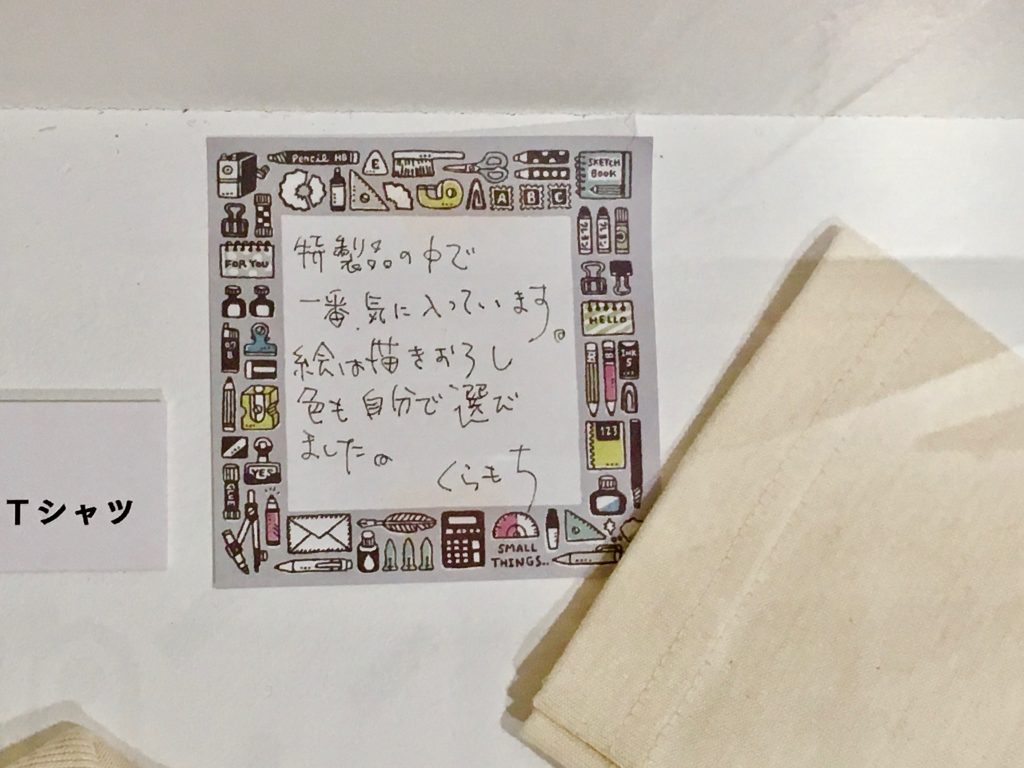 Pencil HB
E
SKETCH
BOOK
A B C
FOR YOU
特製品の中で
一番気に入っています。
絵は描きおろし
色も自分で選び
ました。
くらもち
HELLO
INK
5
123
YES
Tシャツ
SMALL
THINGS..